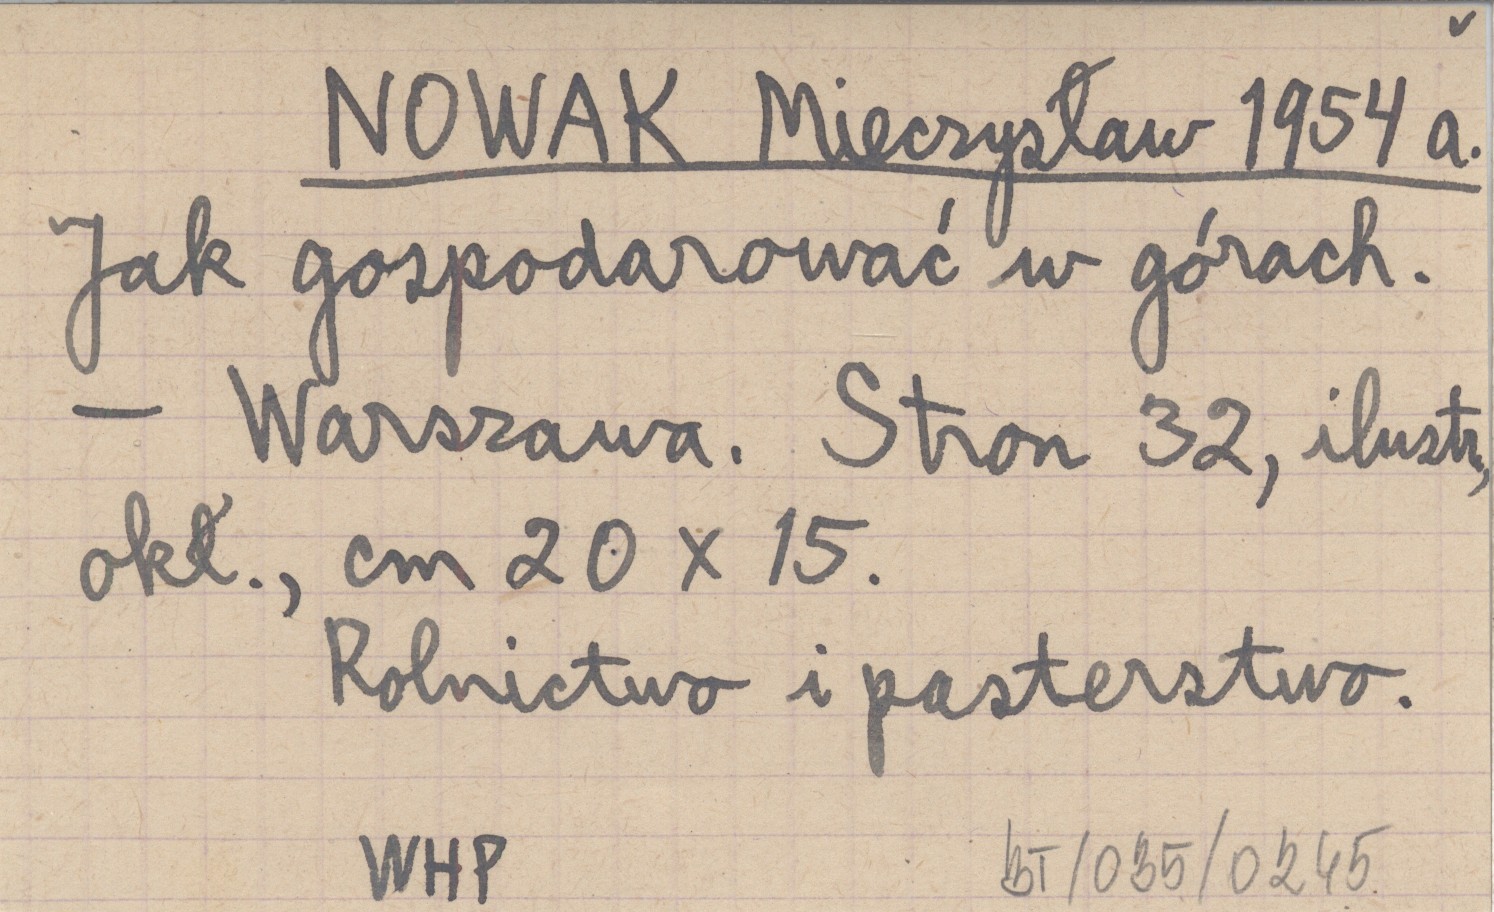 NOWAK Mieczysław 1954 a.
Jak gospodarować w górach.
— Warszawa. Stron 32, ilustr.,
okł., cm 20 x 15.
Rolnictwo i pasterstwo.
WHP
BT/035/0245